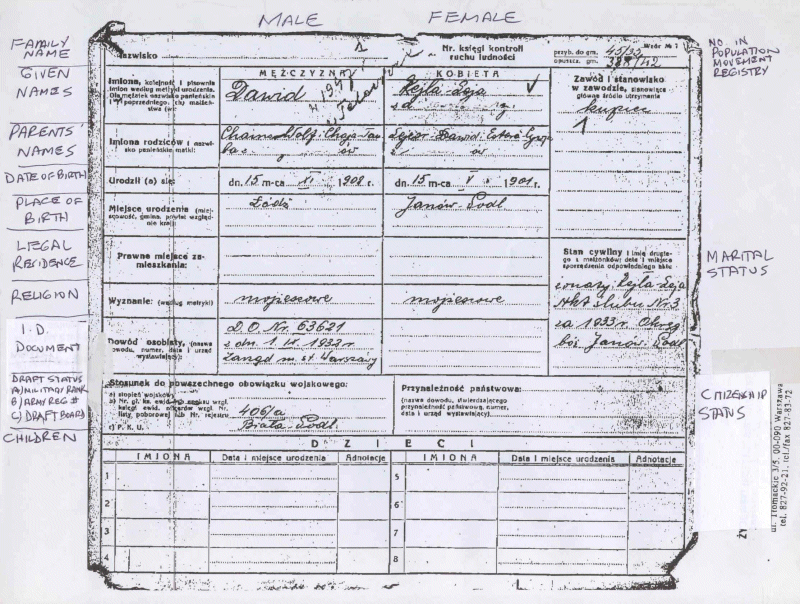 MALE FEMALE
FAMILY NAME
GIVEN NAMES
PARENTS' NAMES
DATE OF BIRTH
PLACE OF BIRTH
LEGAL RESIDENCE
RELIGION
I.D. DOCUMENT
DRAFT STATUS
A) MILITARY RANK
B) ARMY REG #
C) DRAFT BOARD
CHILDREN
NO. IN POPULATION MOVEMENT REGISTRY
MARITAL STATUS
CITIZENSHIP STATUS
Nazwisko
Nr. księgi kontroli ruchu ludności
przyb. do gm. 45/35
opuszcz. gm.
Wzór Nr 1
MĘŻCZYZNA KOBIETA
Imiona, kolejność i pisownia imion według metryki urodzenia.
Dawid
Kejla Leja
Zawód i stanowisko w zawodzie, stanowiące główne źródło utrzymania
kupiec
Imiona rodziców i nazwisko panieńskie matki:
Urodził (a) się:
dn. 15 m-ca XI 1908 r.
dn. 15 m-ca V 1901 r.
Miejsce urodzenia (miejscowość, gmina, powiat względnie kraj):
Łódź
Janów-Podl
Prawne miejsce zamieszkania:
Stan cywilny i imię drugiego z małżonków; data i miejsce sporządzenia odpowiedniego aktu
żonaty Kejla Leja
Akt ślubu Nr 3
za 1933 r. Okręg
bóż. Janów-Podl
Wyznanie: (według metryki)
mojżeszowe
mojżeszowe
Dowód osobisty, (nazwa dowodu, numer, data i urząd wystawiający):
D.O. Nr. 63621
z dn. 1. IX. 1932 r.
zarząd m. st. Warszawy
Stosunek do powszechnego obowiązku wojskowego:
a) stopień wojskowy
c) P. K. U.
406/a
Biała-Podl.
Przynależność państwowa:
(nazwa dowodu, stwierdzającego przynależność państwową, numer, data i urząd wystawiający).
DZIECI
IMIONA Data i miejsce urodzenia Adnotacje IMIONA Data i miejsce urodzenia Adnotacje
1 5
2 6
3 7
4 8
ul. Tłomackie 3/5, 00-090 Warszawa
tel. 827-92-21, tel./fax 827-83-72